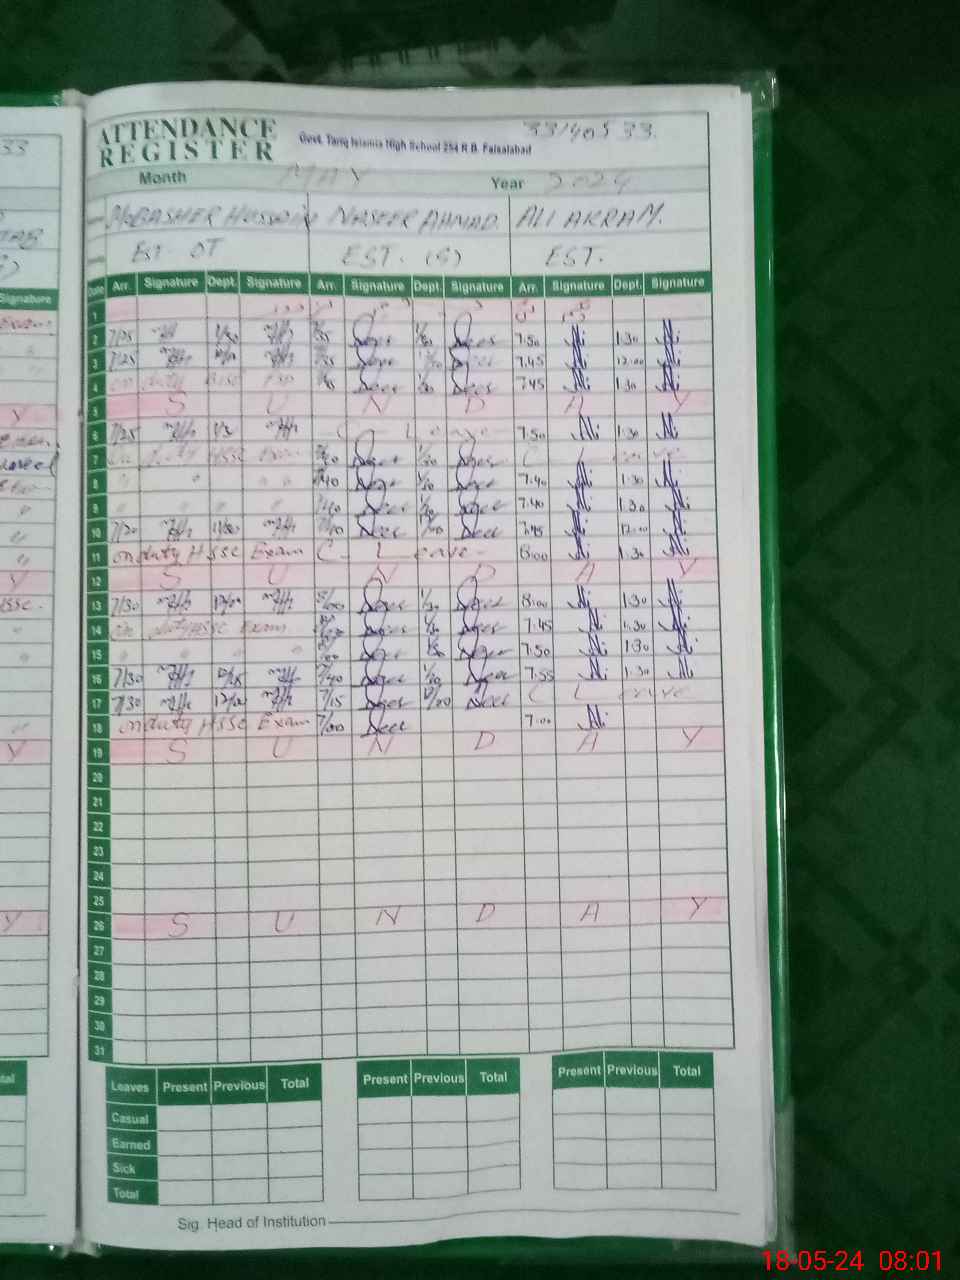 ATTENDANCE
REGISTER
Govt. Tariq Islamia High School 254 R.B. Faisalabad
33140533.
Month MAY Year 2024
MOBASHER HUSSAIN NASEER AHMAD. ALI AKRAM.
EST. OT EST. (S) EST.
Date Arr. Signature Dept. Signature Arr. Signature Dept. Signature Arr. Signature Dept. Signature
1
2 7/25 7.50 1.30
3 7/25 7.45 12.00
4 on duty 7.45 1.30
5 S U N D A Y
6 7/25 C - Leave - 7.50 1.30
7 On duty HSSC Exam 7/40 1/30 C Leave
8 " " " " 7/40 1/30 7.40 1.30
9 " " " " 7/40 1/30 7.40 1.30
10 7/30 7.45 12.00
11 on duty HSSC Exam C - Leave - 8.00 1.30
12 S U N D A Y
13 7/30 12/00 8/00 1/30 8.00 1.30
14 on duty HSSC Exam 1/30 7.45 1.30
15 " " " " 8/00 1/30 7.50 1.30
16 7/30 7/40 1/30 7.55 1.30
17 7/30 12/00 7/15 12/00 C Leave
18 on duty HSSC Exam 7/00 7.00
19 S U N D A Y
20
21
22
23
24
25
26 S U N D A Y
27
28
29
30
31
Leaves Present Previous Total Present Previous Total Present Previous Total
Casual
Earned
Sick
Total
Sig. Head of Institution
18-05-24 08:01